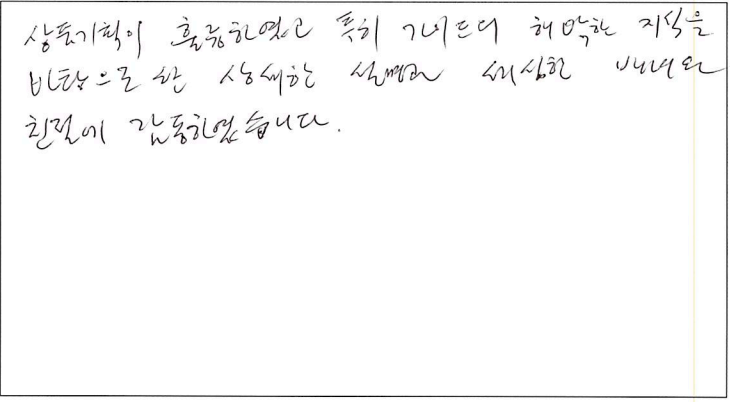 상품기획이 훌륭하였고 특히 가이드의 해박한 지식을
바탕으로 한 상세한 설명과 세심한 배려와
친절에 감동하였습니다.